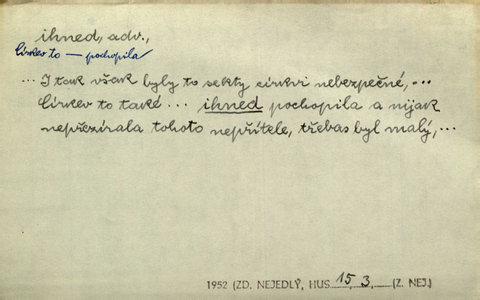 ihned, adv.,
Církev to — pochopila
... I tak však byly to sekty církvi nebezpečné, ...
Církev to také ... ihned pochopila a nijak
nepřezírala tohoto nepřítele, třebas byl malý, ...
1952 (ZD. NEJEDLÝ, HUS 15, 3, (Z. NEJ.)